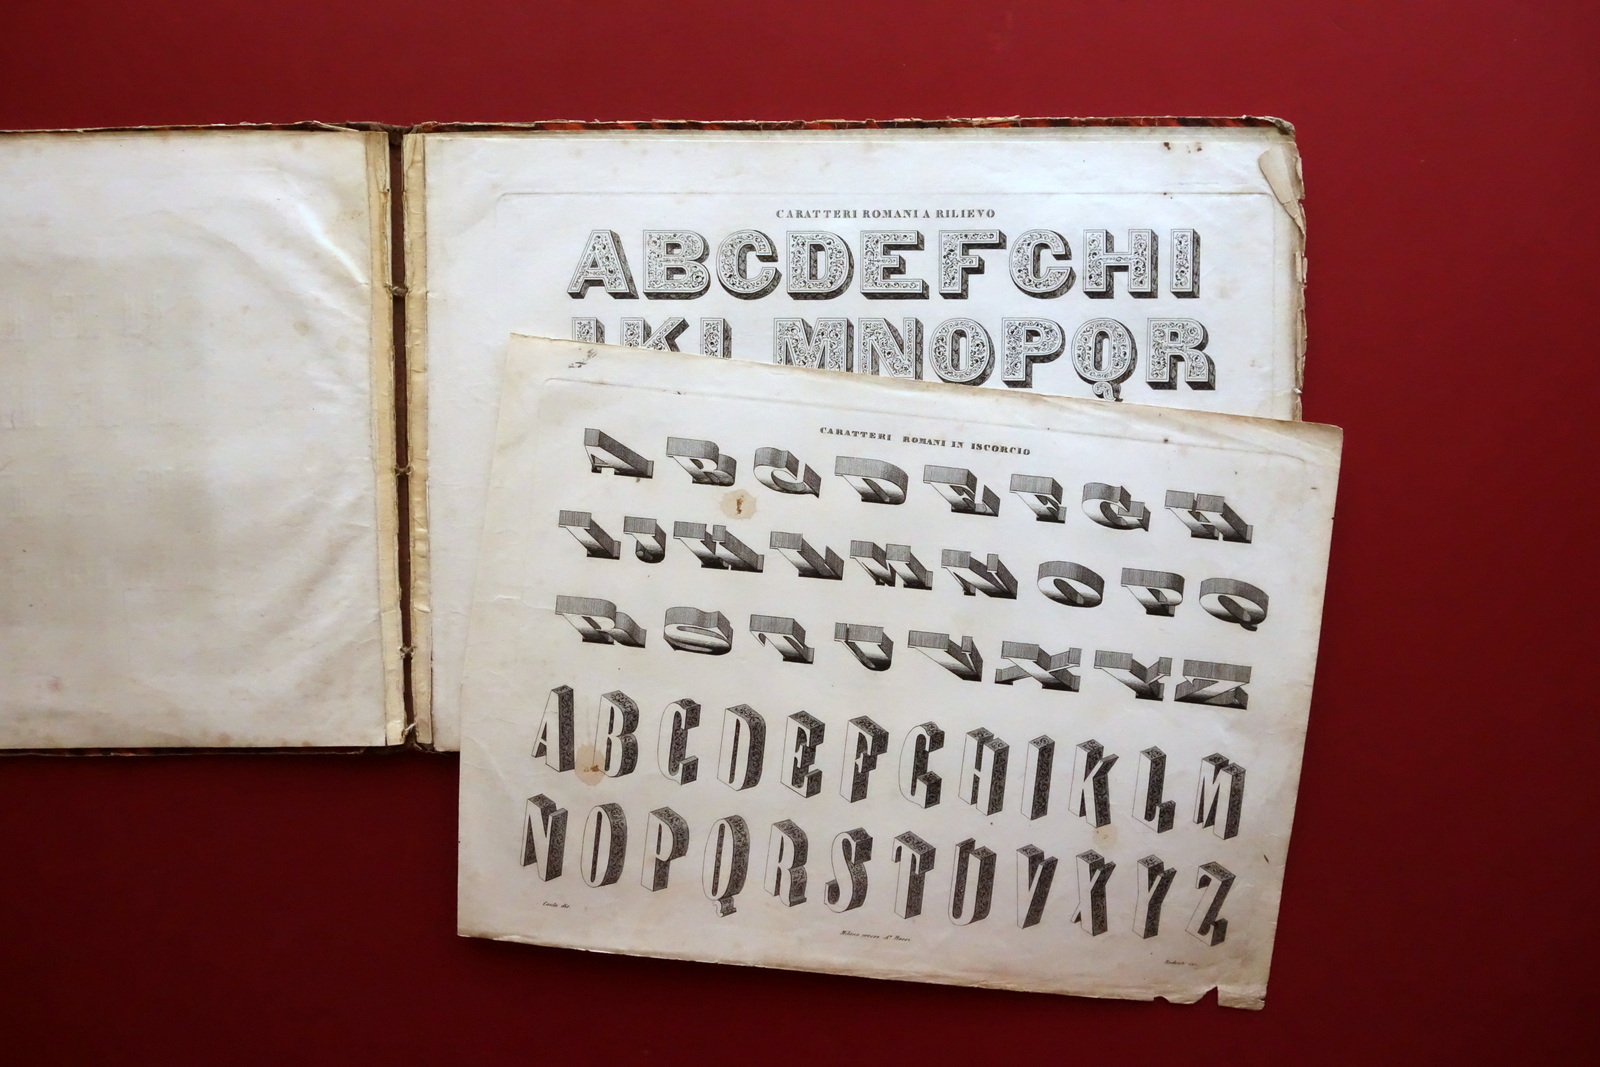 CARATTERI ROMANI A RILIEVO
ABCDEFGHI
JKL MNOPQR
CARATTERI ROMANI IN ISCORCIO
ABCDEFGH
IJKLMNOPQ
RSTUVXYZ
ABCDEFGHIKLM
NOPQRSTUVXYZ
Milano presso